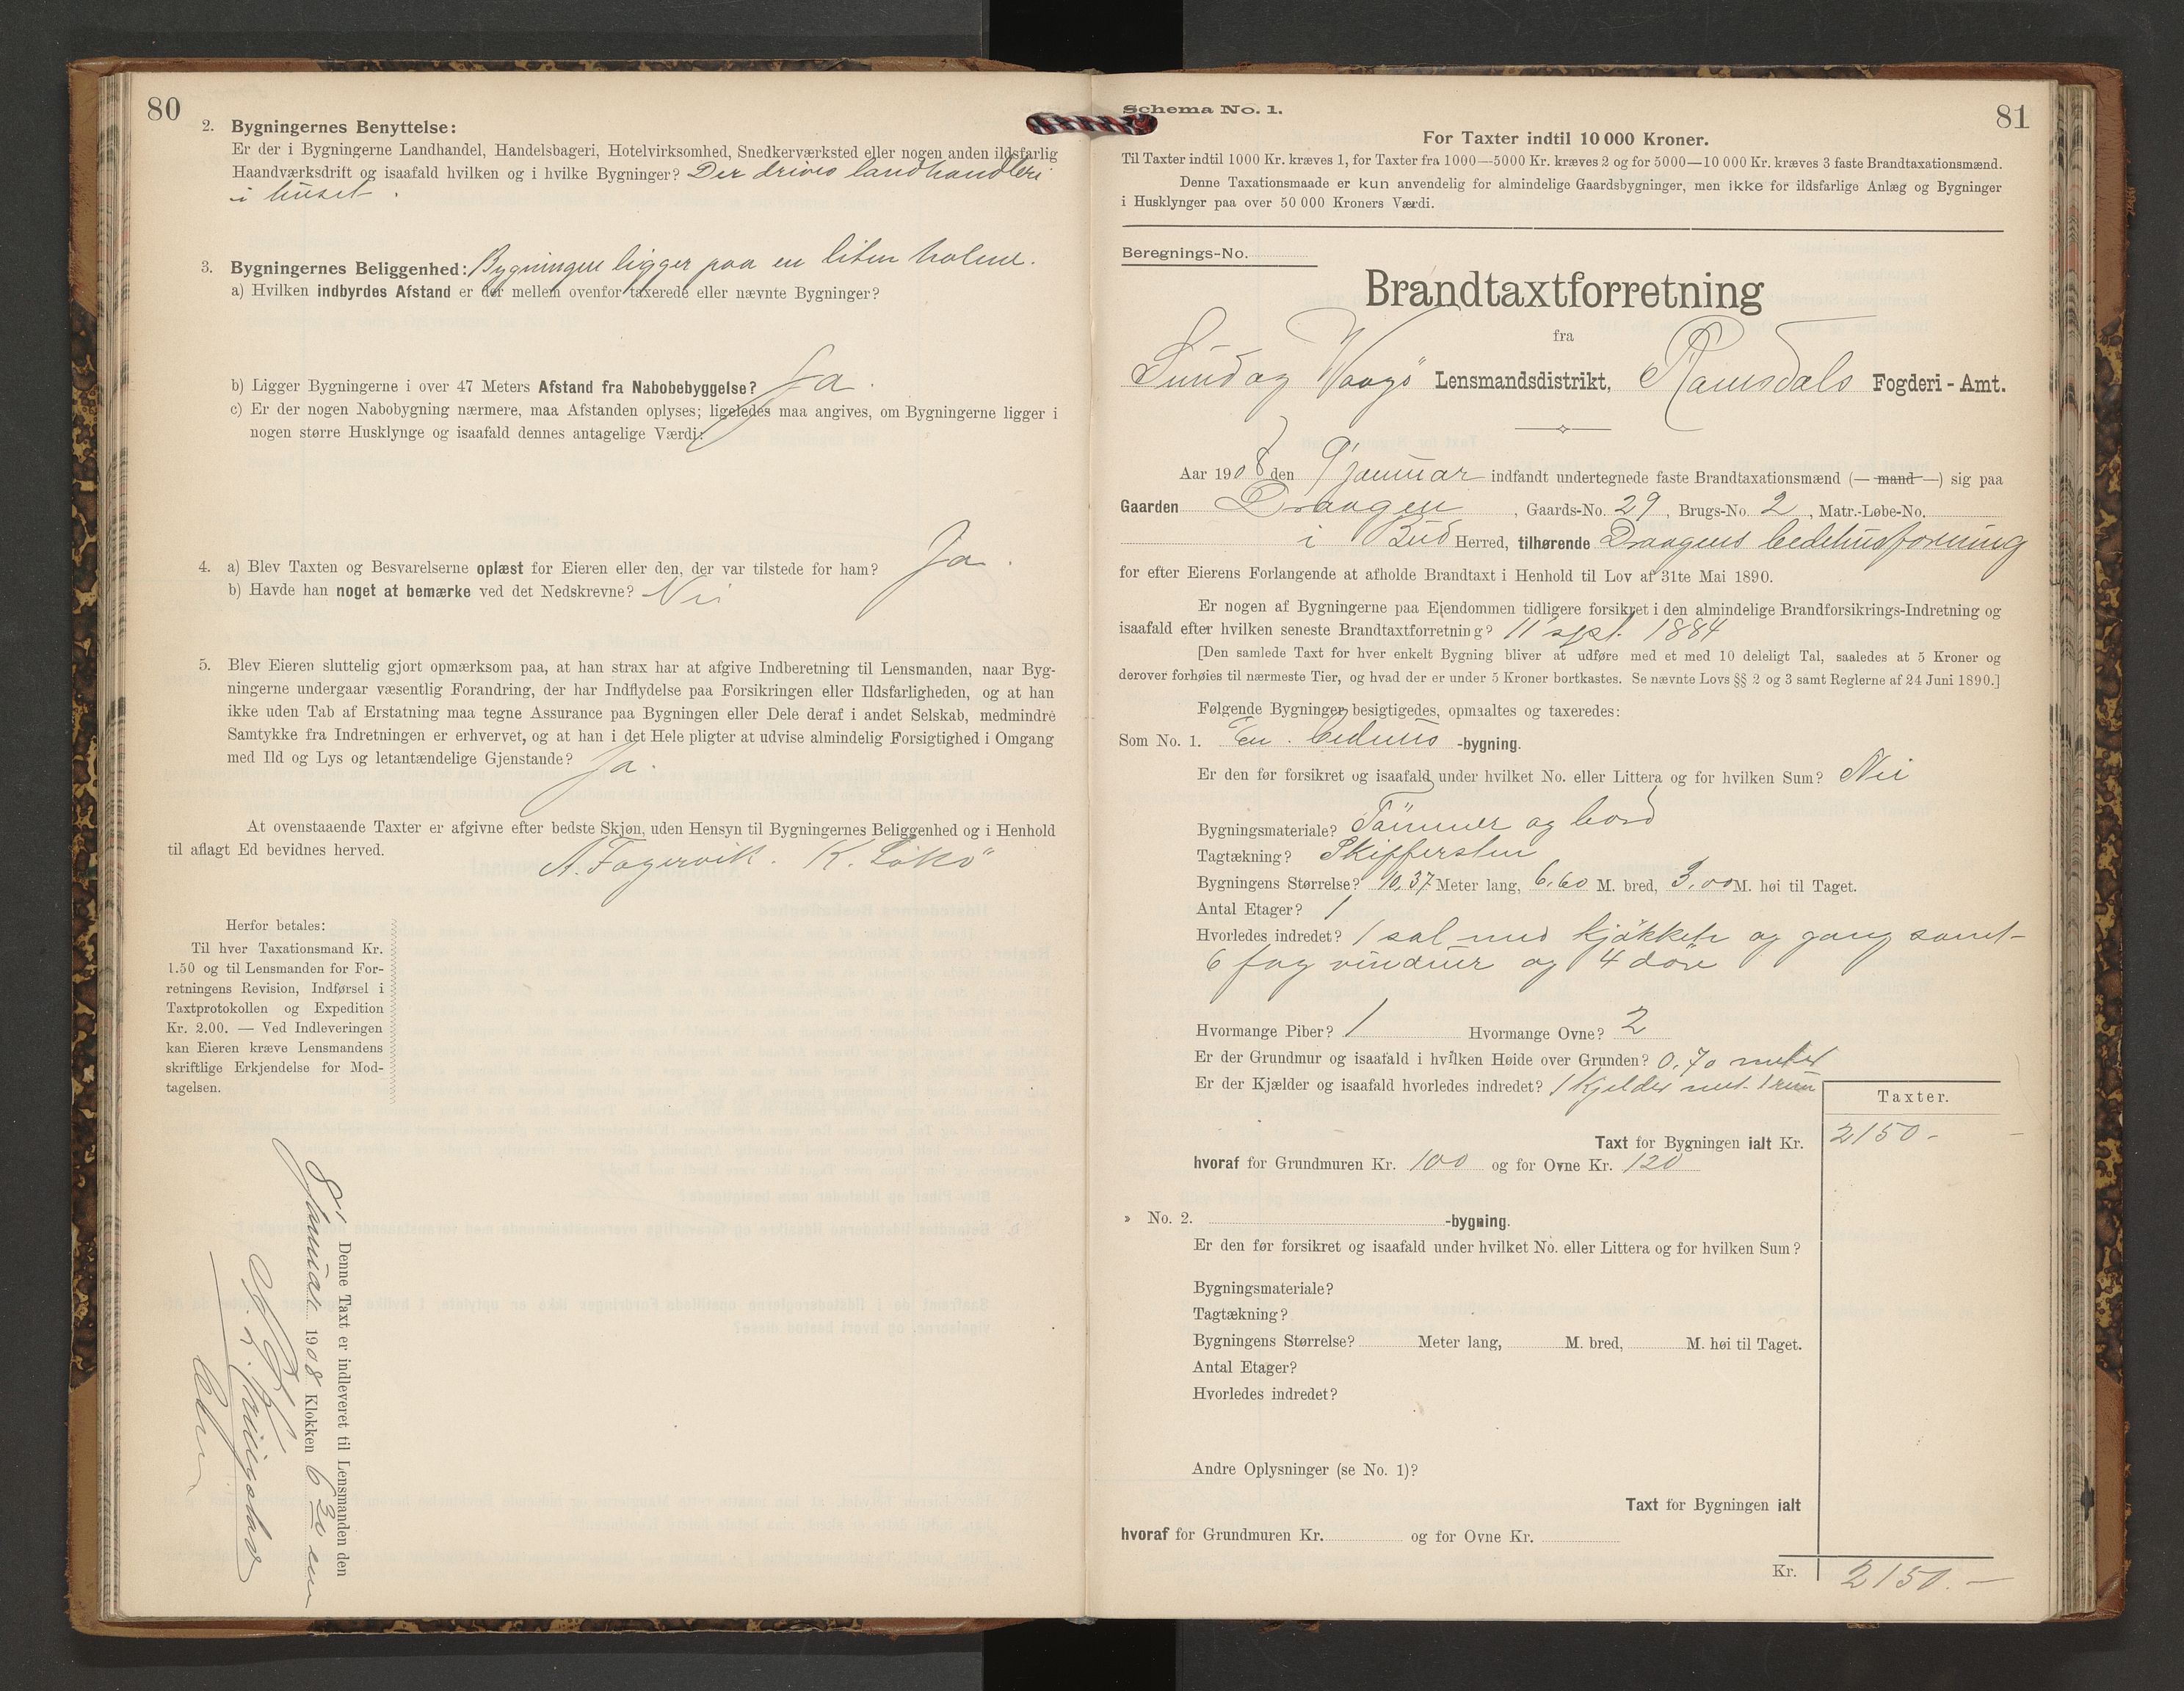 80
2. Bygningernes Benyttelse:
Er der i Bygningerne Landhandel, Handelsbageri, Hotelvirksomhed, Snedkerværksted eller nogen anden ildsfarlig
Haandværksdrift og isaafald hvilken og i hvilke Bygninger? Der drives landhandleri
i huset.
3. Bygningernes Beliggenhed: Bygningen ligger paa en liten holme.
a) Hvilken indbyrdes Afstand er der mellem ovenfor taxerede eller nævnte Bygninger?
b) Ligger Bygningerne i over 47 Meters Afstand fra Nabobebyggelse? Ja.
c) Er der nogen Nabobygning nærmere, maa Afstanden oplyses; ligeledes maa angives, om Bygningerne ligger i
nogen større Husklynge og isaafald dennes antagelige Værdi:
4. a) Blev Taxten og Besvarelserne oplæst for Eieren eller den, der var tilstede for ham? Ja.
b) Havde han noget at bemærke ved det Nedskrevne? Nei
5. Blev Eieren sluttelig gjort opmærksom paa, at han strax har at afgive Indberetning til Lensmanden, naar Byg-
ningerne undergaar væsentlig Forandring, der har Indflydelse paa Forsikringen eller Ildsfarligheden, og at han
ikke uden Tab af Erstatning maa tegne Assurance paa Bygningen eller Dele deraf i andet Selskab, medmindre
Samtykke fra Indretningen er erhvervet, og at han i det Hele pligter at udvise almindelig Forsigtighed i Omgang
med Ild og Lys og letantændelige Gjenstande? Ja.
At ovenstaaende Taxter er afgivne efter bedste Skjøn, uden Hensyn til Bygningernes Beliggenhed og i Henhold
til aflagt Ed bevidnes herved.
A. Fagervik. K. Løkö
Herfor betales:
Til hver Taxationsmand Kr.
1.50 og til Lensmanden for For-
retningens Revision, Indførsel i
Taxtprotokollen og Expedition
Kr. 2.00. — Ved Indleveringen
kan Eieren kræve Lensmandens
skriftlige Erkjendelse for Mod-
tagelsen.
Denne Taxt er indleveret til Lensmanden den
januar 1908 Klokken 6 30 em
81
Schema No. 1.
For Taxter indtil 10 000 Kroner.
Til Taxter indtil 1000 Kr. kræves 1, for Taxter fra 1000—5000 Kr. kræves 2 og for 5000—10 000 Kr. kræves 3 faste Brandtaxationsmænd.
Denne Taxationsmaade er kun anvendelig for almindelige Gaardsbygninger, men ikke for ildsfarlige Anlæg og Bygninger
i Husklynger paa over 50 000 Kroners Værdi.
Beregnings-No.
Brandtaxtforretning
fra
Sund og Vaagö Lensmandsdistrikt, Ramsdals Fogderi - Amt.
Aar 1908 den 9' januar indfandt undertegnede faste Brandtaxationsmænd (— mand —) sig paa
Gaarden Draagen, Gaards-No. 29, Brugs-No. 2, Matr.-Løbe-No.
i Bud Herred, tilhørende Draagens bedehusforening
for efter Eierens Forlangende at afholde Brandtaxt i Henhold til Lov af 31te Mai 1890.
Er nogen af Bygningerne paa Eiendommen tidligere forsikret i den almindelige Brandforsikrings-Indretning og
isaafald efter hvilken seneste Brandtaxtforretning? 11' sept. 1884
[Den samlede Taxt for hver enkelt Bygning bliver at udføre med et med 10 deleligt Tal, saaledes at 5 Kroner og
derover forhøies til nærmeste Tier, og hvad der er under 5 Kroner bortkastes. Se nævnte Lovs §§ 2 og 3 samt Reglerne af 24 Juni 1890.]
Følgende Bygninger besigtigedes, opmaaltes og taxeredes:
Som No. 1. En bedhus -bygning.
Er den før forsikret og isaafald under hvilket No. eller Littera og for hvilken Sum? Nei
Bygningsmateriale? Tömmer og bord
Tagtækning? Skiffersten
Bygningens Størrelse? 10,37 Meter lang, 6,60 M. bred, 3,00 M. høi til Taget.
Antal Etager? 1
Hvorledes indredet? 1 sal med kjökken og gang samt
6 fag vinduer og 4 döre
Hvormange Piber? 1 Hvormange Ovne? 2
Er der Grundmur og isaafald i hvilken Høide over Grunden? 0,70 meter
Er der Kjælder og isaafald hvorledes indredet? 1 kjelder met 1 rum
Taxter.
Taxt for Bygningen ialt Kr. 2150 -
hvoraf for Grundmuren Kr. 100 og for Ovne Kr. 120
» No. 2. -bygning.
Er den før forsikret og isaafald under hvilket No. eller Littera og for hvilken Sum?
Bygningsmateriale?
Tagtækning?
Bygningens Størrelse? Meter lang, M. bred, M. høi til Taget.
Antal Etager?
Hvorledes indredet?
Andre Oplysninger (se No. 1)?
Taxt for Bygningen ialt
hvoraf for Grundmuren Kr. og for Ovne Kr.
Kr. 2150. —